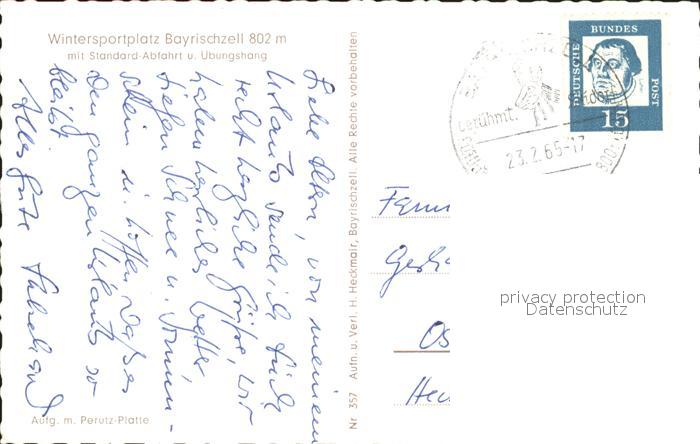 Wintersportplatz Bayrischzell 802 m
mit Standard-Abfahrt u. Übungshang
Liebe Eltern, von meinem
Urlaub sende ich Euch
recht herzliche Grüße, wir
haben herrliches Wetter
tiefen Schnee u. Sonnen-
schein u. hoffen, daß es
den ganzen Urlaub so
bleibt.
Alles Gute
Aufg. m. Perutz-Platte
Nr 357 Aufn. u. Verl. H. Heckmair, Bayrischzell. Alle Rechte vorbehalten
berühmt.
23.2.65-17
800
DEUTSCHE
BUNDES
POST
15
Fam
Os
privacy protection
Datenschutz